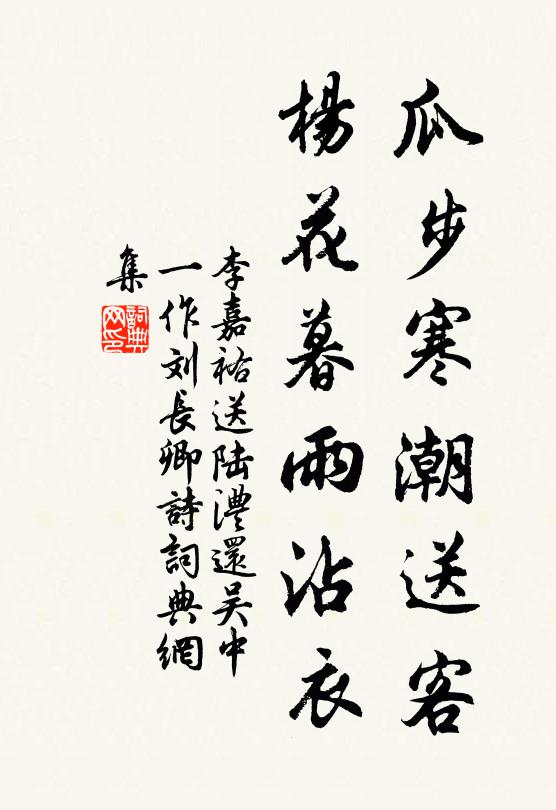 瓜步寒潮送客
楊花暮雨沾衣
李嘉祐送陆澧還吴中
一作刘長卿詩詞典網
集
詞典
网印